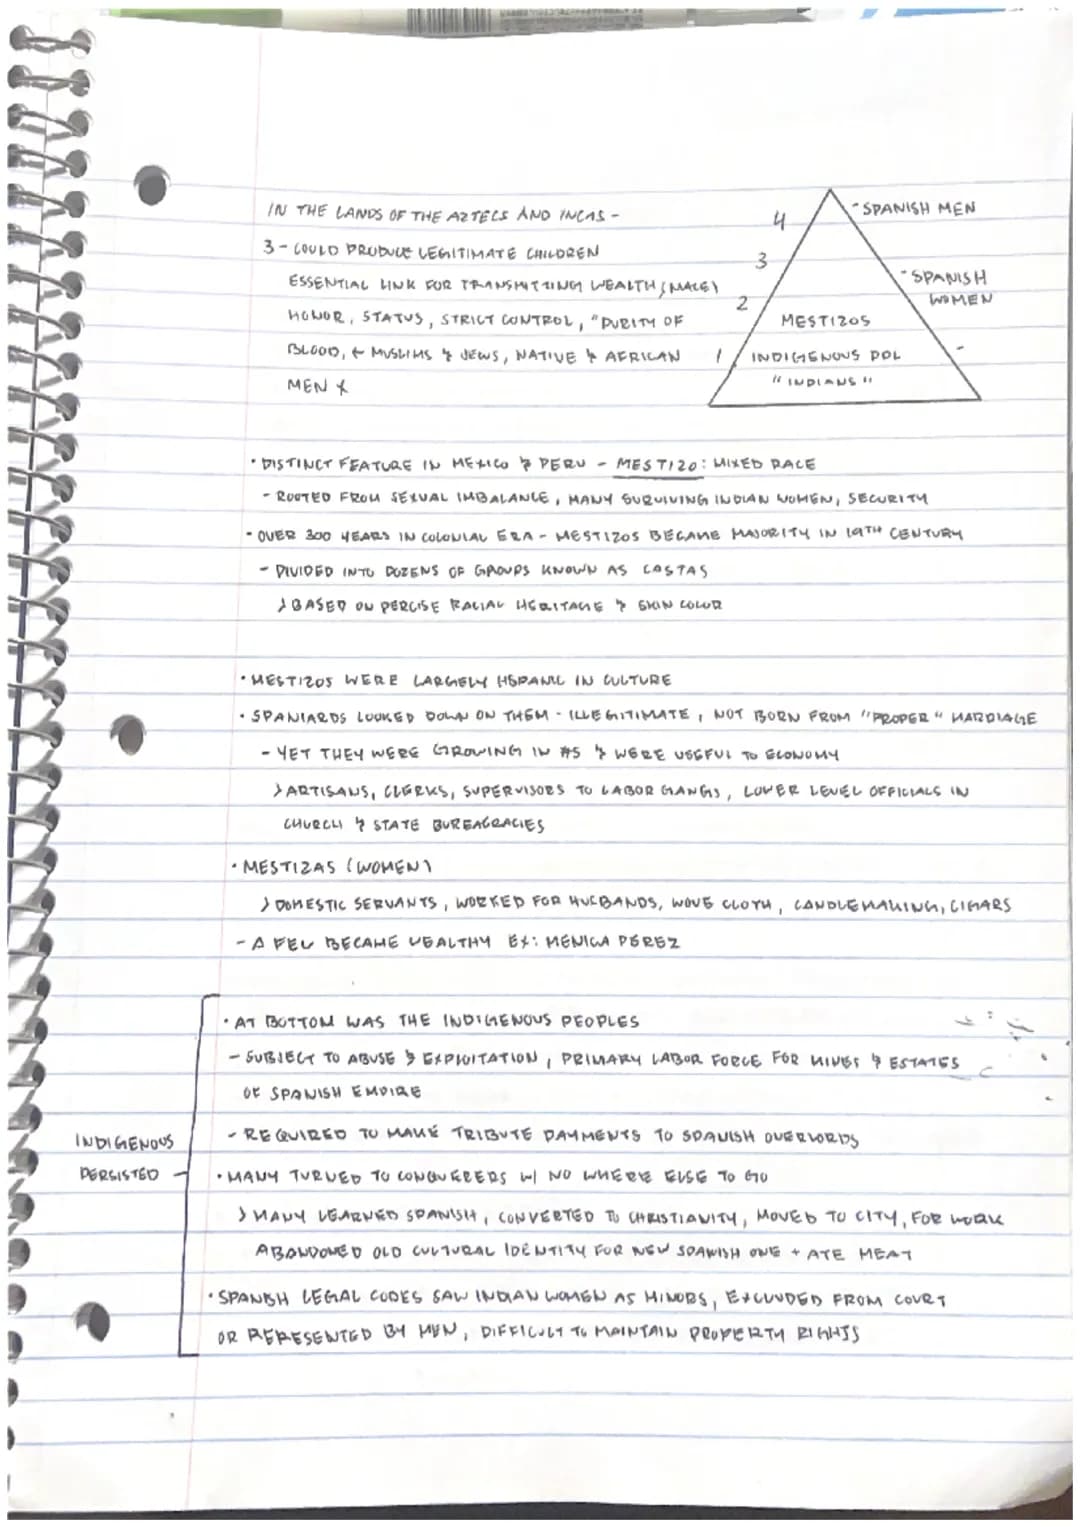 IN THE LANDS OF THE AZTECS AND INCAS -
3 - COULD PRODUCE LEGITIMATE CHILDREN
ESSENTIAL LINK FOR TRANSMITTING WEALTH (MALE)
HONOR, STATUS, STRICT CONTROL, "PURITY OF
BLOOD, ← MUSLIMS & JEWS, NATIVE & AFRICAN
MEN X
4
-SPANISH MEN
3
-SPANISH
WOMEN
2
MESTIZOS
1
INDIGENOUS POL
"INDIANS"
• DISTINCT FEATURE IN MEXICO & PERU - MESTIZO: MIXED RACE
- ROOTED FROM SEXUAL IMBALANCE, MANY SURVIVING INDIAN WOMEN, SECURITY
• OVER 300 YEARS IN COLONIAL ERA - MESTIZOS BECAME MAJORITY IN 19TH CENTURY
- DIVIDED INTO DOZENS OF GROUPS KNOWN AS CASTAS
> BASED ON PERCISE RACIAL HERITAGE & SKIN COLOR
• MESTIZOS WERE LARGELY HSPANIC IN CULTURE
• SPANIARDS LOOKED DOWN ON THEM - ILLEGITIMATE, NOT BORN FROM "PROPER" MARRIAGE
- YET THEY WERE GROWING IN #S & WERE USEFUL TO ECONOMY
> ARTISANS, CLERKS, SUPERVISORS TO LABOR GANGS, LOWER LEVEL OFFICIALS IN
CHURCH & STATE BUREACRACIES
• MESTIZAS (WOMEN)
> DOMESTIC SERVANTS, WORKED FOR HUSBANDS, WOVE CLOTH, CANDLEMAKING, CIGARS
- A FEW BECAME WEALTHY EX: MENICA PEREZ
• AT BOTTOM WAS THE INDIGENOUS PEOPLES
- SUBJECT TO ABUSE & EXPLOITATION, PRIMARY LABOR FORCE FOR MINES & ESTATES
OF SPANISH EMPIRE
- REQUIRED TO MAKE TRIBUTE PAYMENTS TO SPANISH OVERLORDS
INDIGENOUS
PERSISTED
• MANY TURNED TO CONQUERERS W/ NO WHERE ELSE TO GO
> MANY LEARNED SPANISH, CONVERTED TO CHRISTIANITY, MOVED TO CITY, FOR WORK
ABANDONED OLD CULTURAL IDENTITY FOR NEW SPANISH ONE + ATE MEAT
• SPANISH LEGAL CODES SAW INDIAN WOMEN AS MINORS, EXCLUDED FROM COURT
OR RERESENTED BY MEN, DIFFICULT TO MAINTAIN PROPERTY RIGHTS